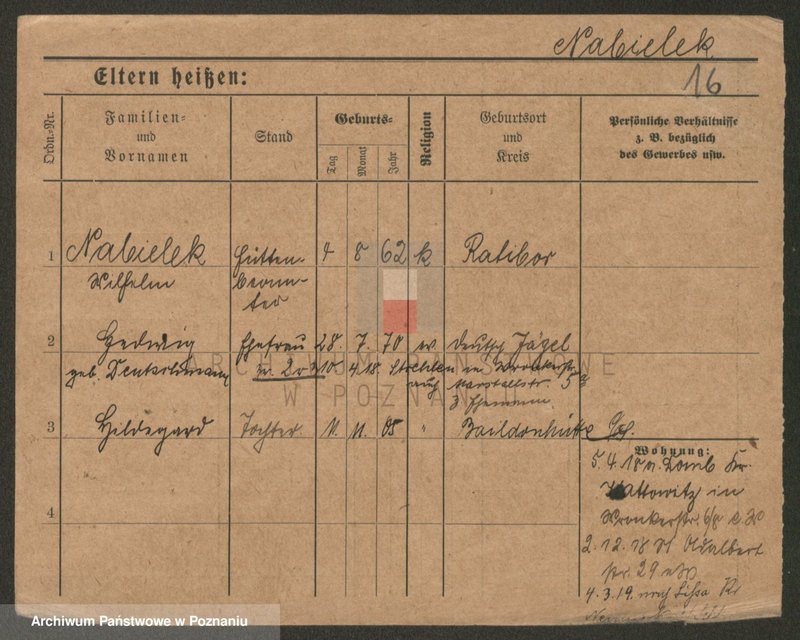 Nabielek
16
Eltern heißen:
Ordn.-Nr.
Familien-
und
Vornamen
Stand
Geburts-
Tag
Monat
Jahr
Religion
Geburtsort
und
Kreis
Persönliche Verhältnisse
z. B. bezüglich
des Gewerbes usw.
1 Nabielek Hütten- 4 8 62 k Ratibor
Wilhelm beam-
ter
2 Hedwig Ehefrau 28. 7. 70 ev Deutsch Jägel
geb. Strehlen in
auf
3 Hildegard Tochter 11. 11. 05 " Baildonhütte
4
Wohnung:
5. 4. 18 Domb Kr.
Kattowitz in
Wronkerstr.
2. 12. 18 St Adalbert
str. 29
4. 3. 19. nach Lissa
ARCHIWUM PAŃSTWOWE
W POZNANIU
Archiwum Państwowe w Poznaniu